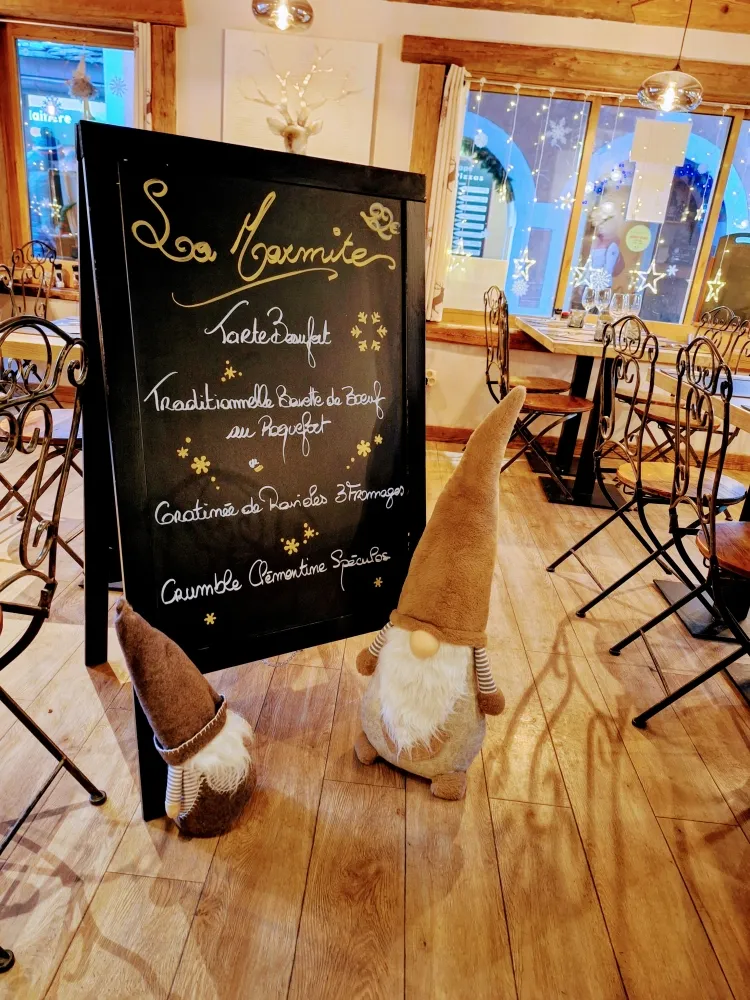 La Marmite
Tarte Beaufort
Traditionnelle Bavette de Bœuf
au Roquefort
Gratinée de Ravioles 3 Fromages
Crumble Clémentine Spéculos